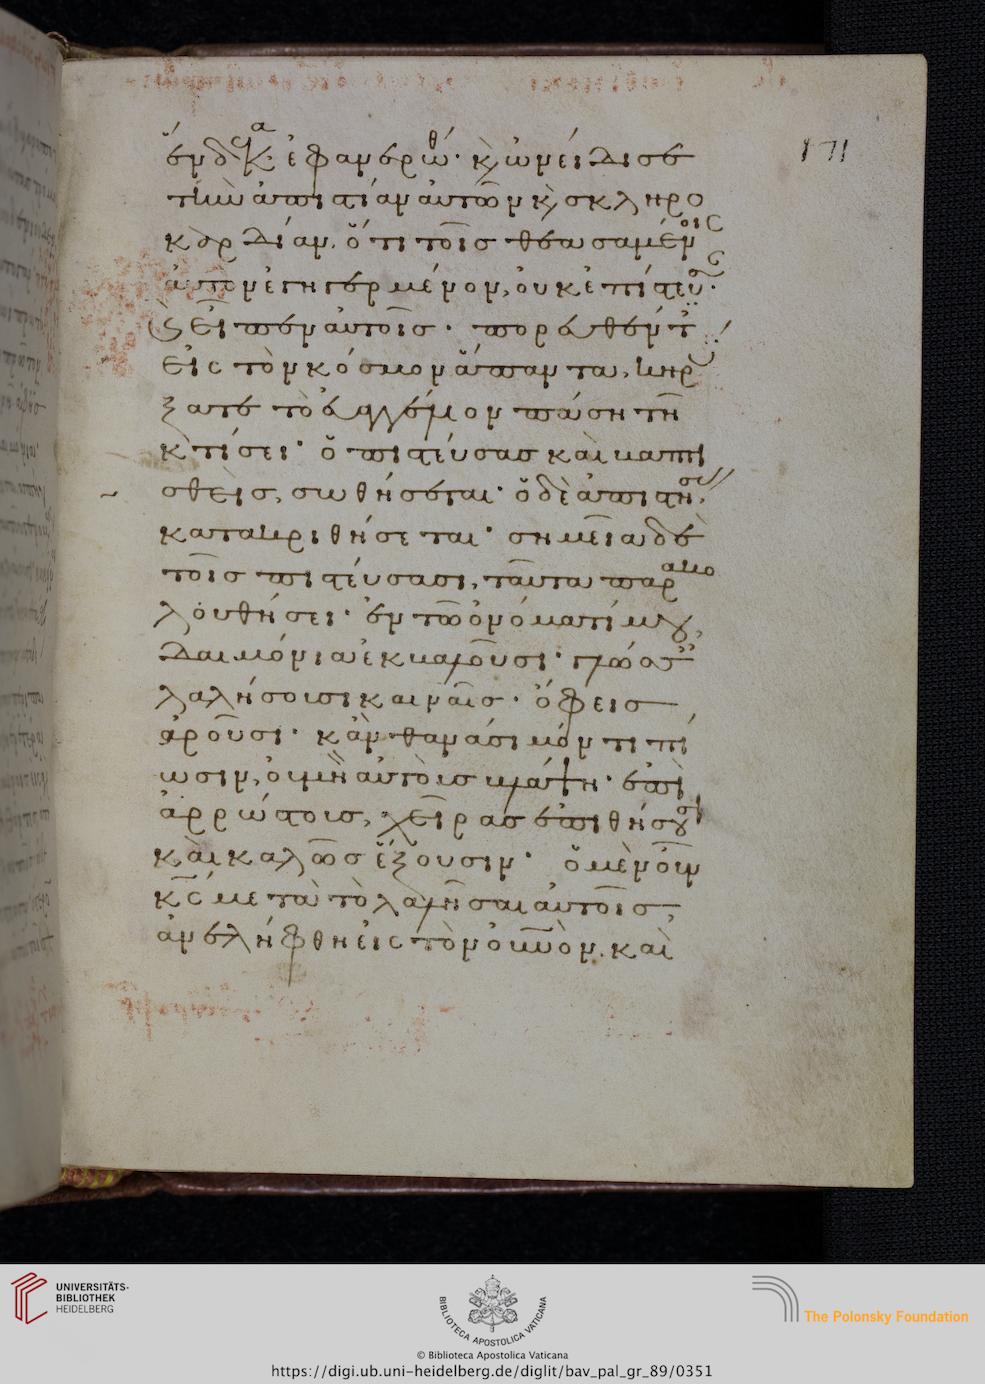 ἕνδεκα. ἐφανερώθ· κ, ὠνείδισε
τὴν ἀπιστίαν αὐτῶν κ, σκληρο
καρδίαν, ὅτι τοῖς θεασαμένοις
αὐτὸν ἐγηγερμένον, οὐκ ἐπίστευσ·
κ, εἶπεν αὐτοῖς· πορευθέντ
εἰς τὸν κόσμον ἅπαντα, κηρύ
ξατε τὸ εὐαγγέλιον πάσῃ τῇ
κτίσει· ὁ πιστεύσας καὶ βαπτι
σθεὶς, σωθήσεται· ὁ δὲ ἀπιστήσ
κατακριθήσεται· σημεῖα δὲ
τοῖς πιστεύσασι, ταῦτα παρακο
λουθήσει· ἐν τῶ ὀνόματί μου,
δαιμόνια ἐκβαλοῦσι· γλώσσ
λαλήσουσι καιναῖς· ὄφεις
ἀροῦσι· κἂν θανάσιμόν τι πί
ωσιν, οὐ μὴ αὐτοὺς βλάψῃ· ἐπὶ
ἀρρώστους, χεῖρας ἐπιθήσουσι
καὶ καλῶς ἕξουσιν· ὁ μὲν οὖν
κς μετὰ τὸ λαλῆσαι αὐτοῖς,
ἀνελήφθη εἰς τὸν οὐνὸν. καὶ
171
UNIVERSITÄTS-
BIBLIOTHEK
HEIDELBERG
BIBLIOTECA APOSTOLICA VATICANA
The Polonsky Foundation
© Biblioteca Apostolica Vaticana
https://digi.ub.uni-heidelberg.de/diglit/bav_pal_gr_89/0351